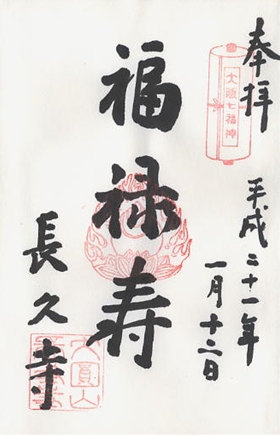 奉拝
大須七福神
平成二十一年
一月十二日
福禄寿
長久寺